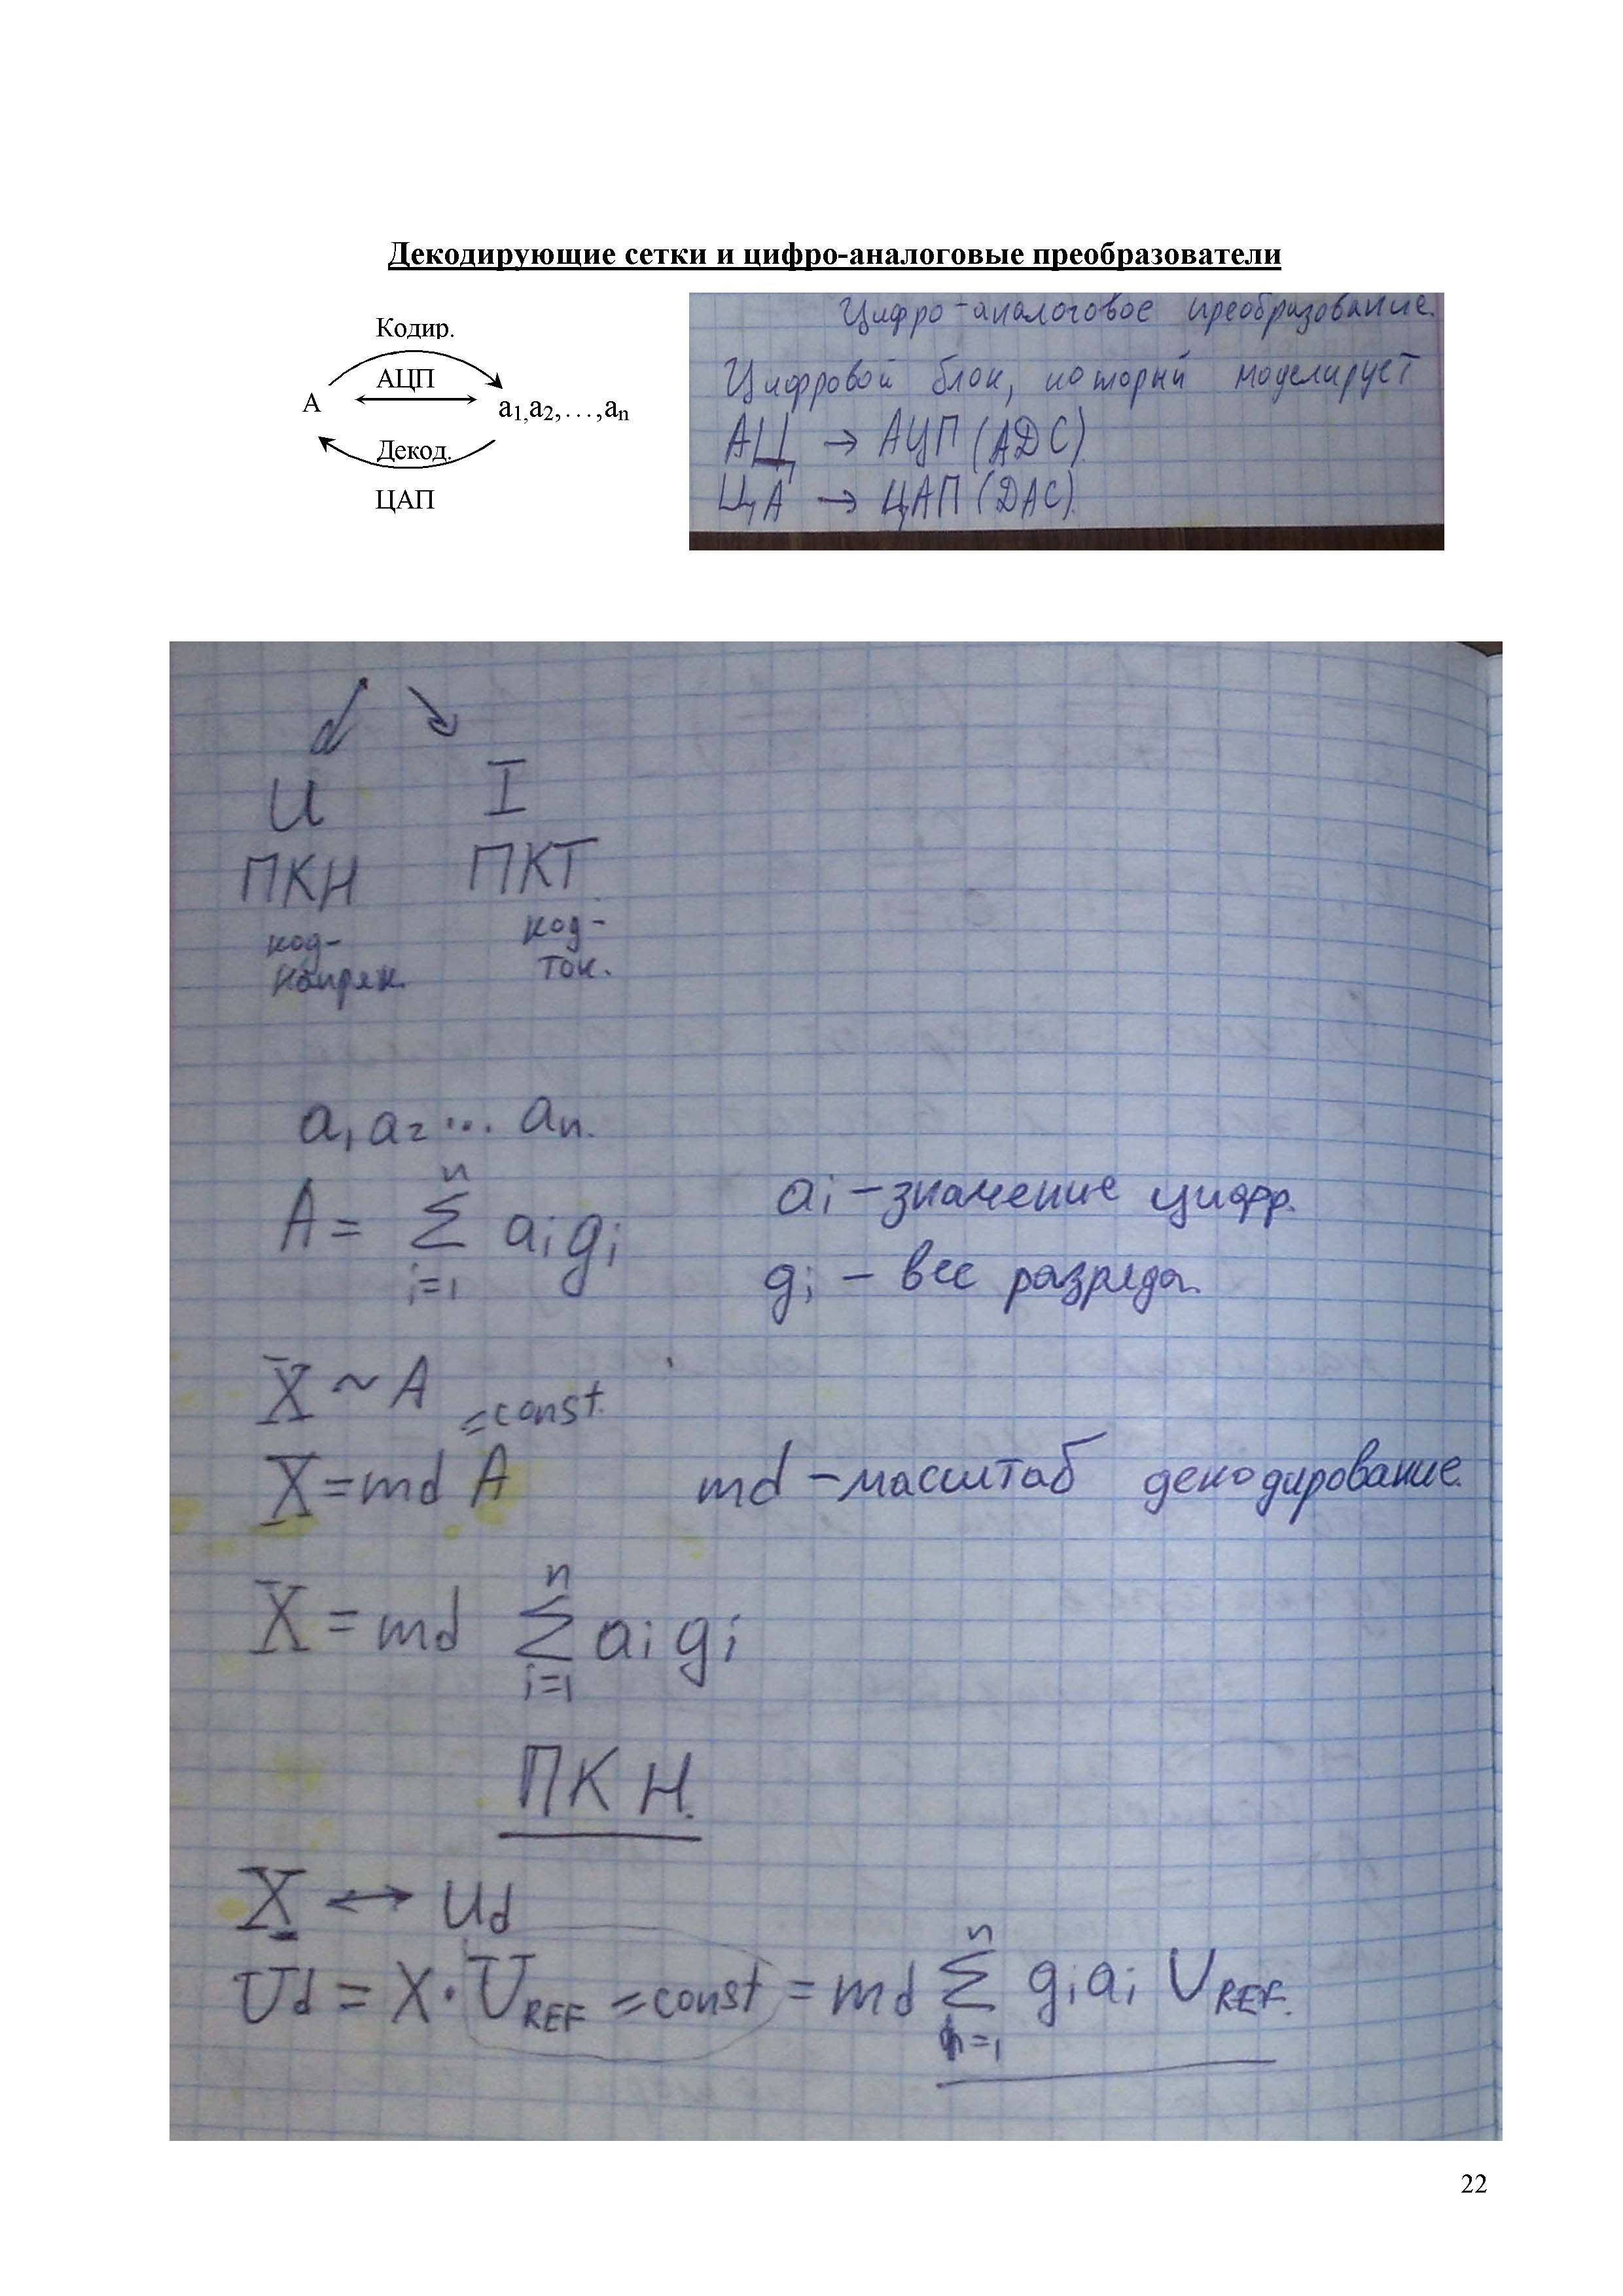 Декодирующие сетки и цифро-аналоговые преобразователи
Кодир.
АЦП
A
a1,a2,…,an
Декод.
ЦАП
Цифро-аналоговое преобразование.
Цифровой блок, который моделирует
АЦ → АЦП (ADC).
ЦА → ЦАП (DAC).
U I
ПКН ПКТ
код- код-
напряж. ток.
a1 a2 ... an.
A = Σ ai gi ai – значение цифр.
n
i=1
gi – вес разряда.
X ~ A
=const.
X = md A md – масштаб декодирование.
X = md Σ ai gi
n
i=1
ПКН.
X ↔ Ud
Ud = X · UREF = const = md Σ gi ai UREF.
n
n=1
22